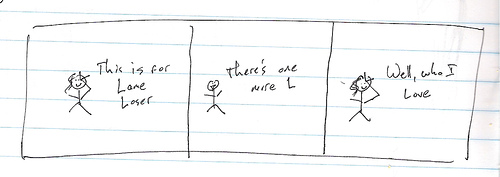 This is for
Lame
Loser
there's one
more L
Well, who I
Love